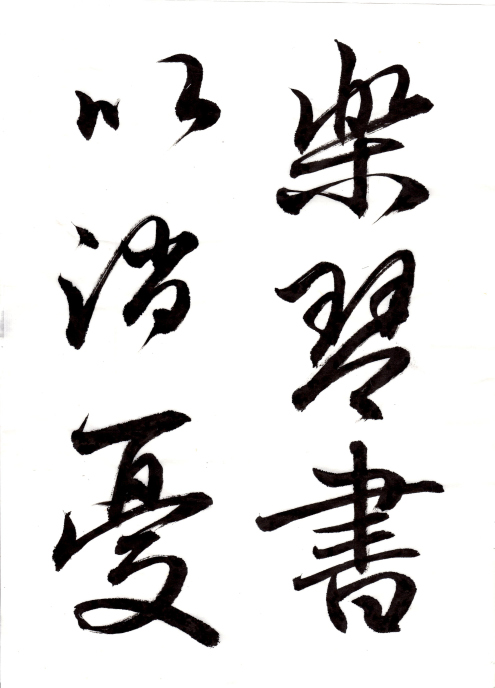 樂琴書
以消憂